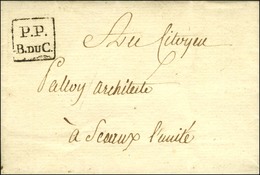 P.P.
B.DUC.
Au Citoyen
Palloy architecte
à Sceaux l'unité